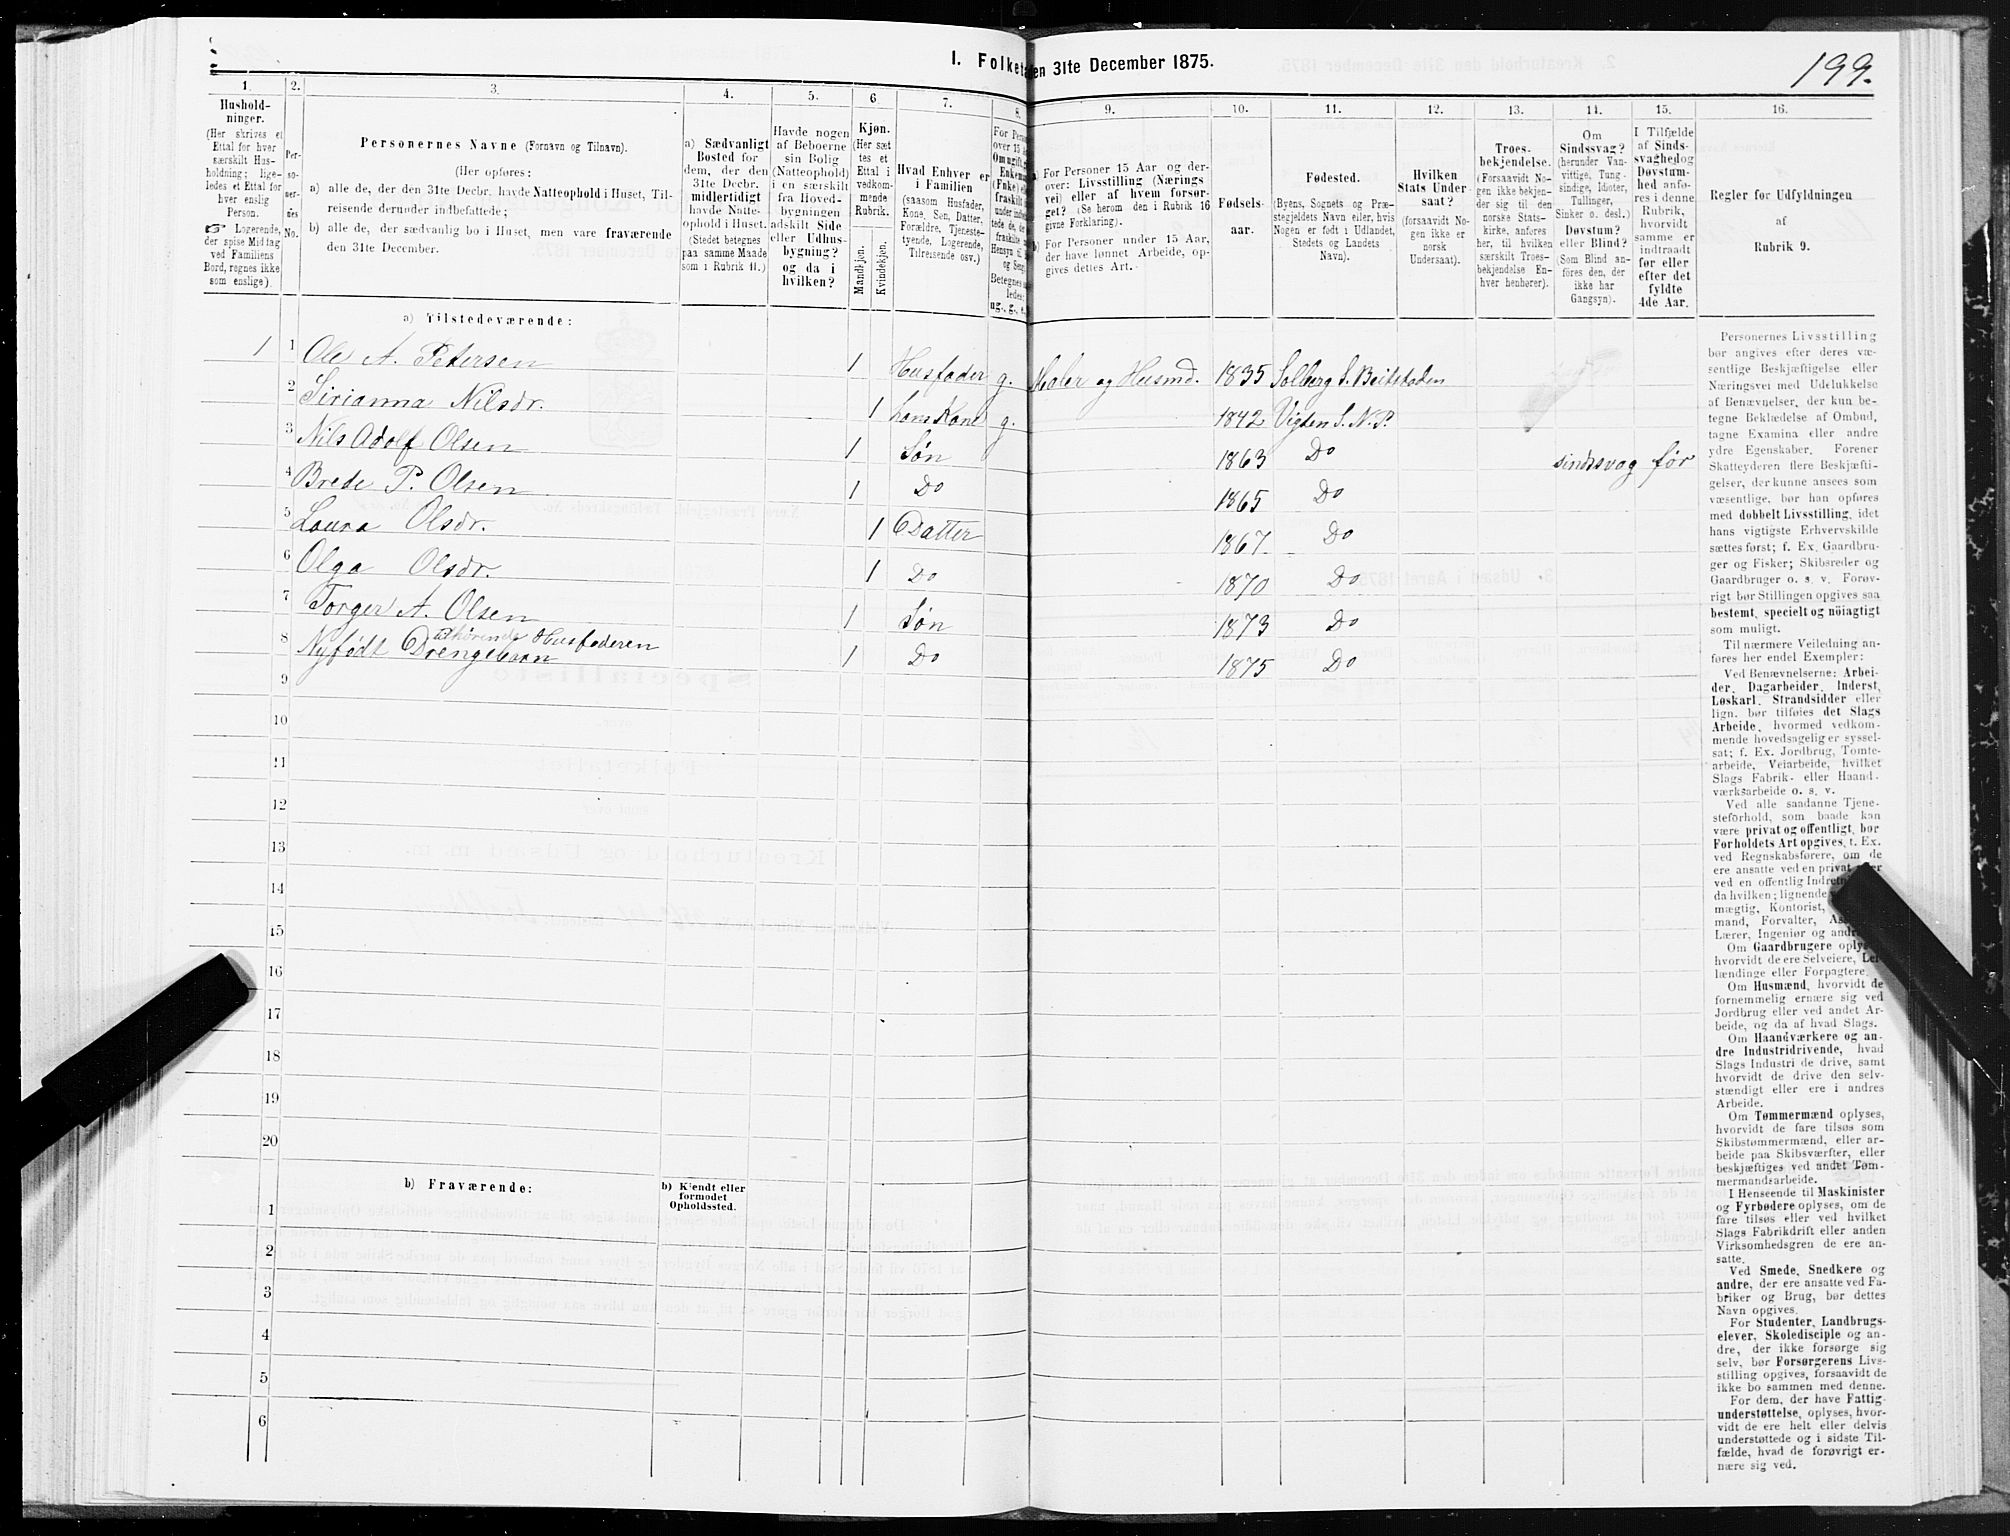 I. Folketa
en 31te December 1875.
199.
1.
2.
3.
4.
5.
6.
7.
8.
9.
10.
11.
12.
13.
14.
15.
16.
Hushold-
ninger.
(Her skrives et
Ettal for hver
særskilt Hus-
holdning; lige-
ledes et Ettal for
hver enslig
Person.
☞ Logerende,
der spise Middag
ved Familiens
Bord, regnes ikke
som enslige).
Per-
so-
ner-
nes
No.
Personernes Navne (Fornavn og Tilnavn).
(Her opføres:
a) alle de, der den 31te Decbr. havde Natteophold i Huset, Til-
reisende derunder indbefattede;
b) alle de, der sædvanlig bo i Huset, men vare fraværende
den 31te December.
a) Sædvanligt
Bosted for
dem, der den
31te Decbr.
midlertidigt
havde Natte-
ophold i Huset.
(Stedet betegnes
paa samme Maade
som i Rubrik 11.)
Havde nogen
af Beboerne
sin Bolig
(Natteophold)
i en særskilt
fra Hoved-
bygningen
adskilt Side
eller Udhus-
bygning?
og da i
hvilken?
Kjøn.
(Her sæt
tes et
Ettal i
vedkom-
mende
Rubrik.
Mandkjøn.
Kvindekjøn.
Hvad Enhver er
i Familien
(saasom Husfader,
Kone, Søn, Datter,
Forældre, Tjeneste-
tyende, Logerende,
Tilreisende osv.)
For Perso
over 15 A
Om ugift, g
Enkema
(Enke) el
fraskilt
under indbe
tede de, d
fraskilte
Hensyn ti
og Seng.
Betegnes
ledes:
ug., g., e.
a) For Personer 15 Aar og der-
over: Livsstilling (Nærings-
vei) eller af hvem forsør-
get? (Se herom den i Rubrik 16
givne Forklaring).
b) For Personer under 15 Aar,
der have lønnet Arbeide, op-
gives dettes Art.
Fødsels-
aar.
Fødested.
(Byens, Sognets og Præ-
stegjeldets Navn eller, hvis
Nogen er født i Udlandet,
Stedets og Landets
Navn).
Hvilken
Stats Under-
saat?
(forsaavidt No-
gen ikke er
norsk
Undersaat).
Troes-
bekjendelse.
(Forsaavidt No-
gen ikke bekjen-
der sig til den
norske Stats-
kirke, anføres
her, til hvilken
særskilt Troes-
bekjendelse En-
hver henhører).
Om
Sindssvag?
(herunder Van-
vittige, Tung-
sindige, Idioter,
Tullinger,
Sinker o. desl.)
Døvstum?
eller Blind?
(Som Blind an-
føres den, der
ikke har
Gangsyn).
I Tilfælde
af Sinds-
svaghed og
Døvstum-
hed anfø-
res i denne
Rubrik,
hvorvidt
samme er
indtraadt
før eller
efter det
fyldte
4de Aar.
Regler for Udfyldningen
af
Rubrik 9.
a) Tilstedeværende:
1 1 Ole A. Petersen 1 Husfader g. Maler og Husmd. 1835 Solberg S. Beitstaden
2 Sirianna Nilsdr. 1 hans Kone g. 1842 Vigten S. N. P.
3 Nils Adolf Olsen 1 Søn 1863 Do sindssvag før
4 Brede P. Olsen 1 Do 1865 Do
5 Laura Olsdr. 1 Datter 1867 Do
6 Olga Olsdr. 1 Do 1870 Do
7 Torger A. Olsen 1 Søn 1873 Do
tilhørende Husfaderen
8 Nyfødt Drengebarn 1 Do 1875 Do
9
10
11
12
13
14
15
16
17
18
19
20
b) Fraværende:
b) Kjendt eller
formodet
Opholdssted.
1
2
3
4
5
6
Personernes Livsstilling
bør angives efter deres væ-
sentlige Beskjæftigelse eller
Næringsvei med Udelukkelse
af Benævnelser, der kun be-
tegne Beklædelse af Ombud,
tagne Examina eller andre
ydre Egenskaber. Forener
Skatteyderen flere Beskjæfti-
gelser, der kunne ansees som
væsentlige, bør han opføres
med dobbelt Livsstilling, idet
hans vigtigste Erhvervskilde
sættes først; f. Ex. Gaardbru-
ger og Fisker; Skibsreder og
Gaardbruger o. s. v. Forøv-
rigt bør Stillingen opgives saa
bestemt, specielt og nöiagtigt
som muligt.
Til nærmere Veiledning an-
føres her endel Exempler:
Ved Benævnelserne: Arbei-
der, Dagarbeider, Inderst,
Løskarl, Strandsidder eller
lign. bør tilføies det Slags
Arbeide, hvormed vedkom-
mende hovedsagelig er syssel-
sat; f. Ex. Jordbrug, Tomte-
arbeide, Veiarbeide, hvilket
Slags Fabrik- eller Haand-
værksarbeide o. s. v.
Ved alle saadanne Tjene-
steforhold, som baade kan
være privat og offentligt, bør
Forholdets Art opgives, t. Ex.
ved Regnskabsførere, om de
ere ansatte ved en privat eller
ved en offentlig Indretn
da hvilken; lignende
mægtig, Kontorist,
mand, Forvalter, As
Lærer, Ingeniør og andre
Om Gaardbrugere oplys
hvorvidt de ere Selveiere, Lei-
lændinge eller Forpagtere.
Om Husmænd, hvorvidt de
fornemmelig ernære sig ved
Jordbrug eller ved andet Ar-
beide, og da af hvad Slags.
Om Haandværkere og an-
dre Industridrivende, hvad
Slags Industri de drive, samt
hvorvidt de drive den selv-
stændigt eller ere i andres
Arbeide.
Om Tømmermænd oplyses,
hvorvidt de fare tilsøs som
Skibstømmermænd, eller ar-
beide paa Skibsværfter, eller
beskjæftiges ved andet Tøm-
mermandsarbeide.
I Henseende til Maskinister
og Fyrbødere oplyses, om de
fare tilsøs eller ved hvilket
Slags Fabrikdrift eller anden
Virksomhedsgren de ere an-
satte.
Ved Smede, Snedkere og
andre, der ere ansatte ved Fa-
briker og Brug, bør dettes
Navn opgives.
For Studenter, Landbrugs-
elever, Skoledisciple og an-
dre, der ikke forsørge sig
selv, bør Forsørgerens Livs-
stilling opgives, forsaavidt de
ikke bo sammen med denne.
For dem, der have Fattig-
understøttelse, oplyses, hvor-
vidt de ere helt eller delvis
understøttede og i sidste Til-
fælde, hvad de forøvrigt er-
nære sig ved.